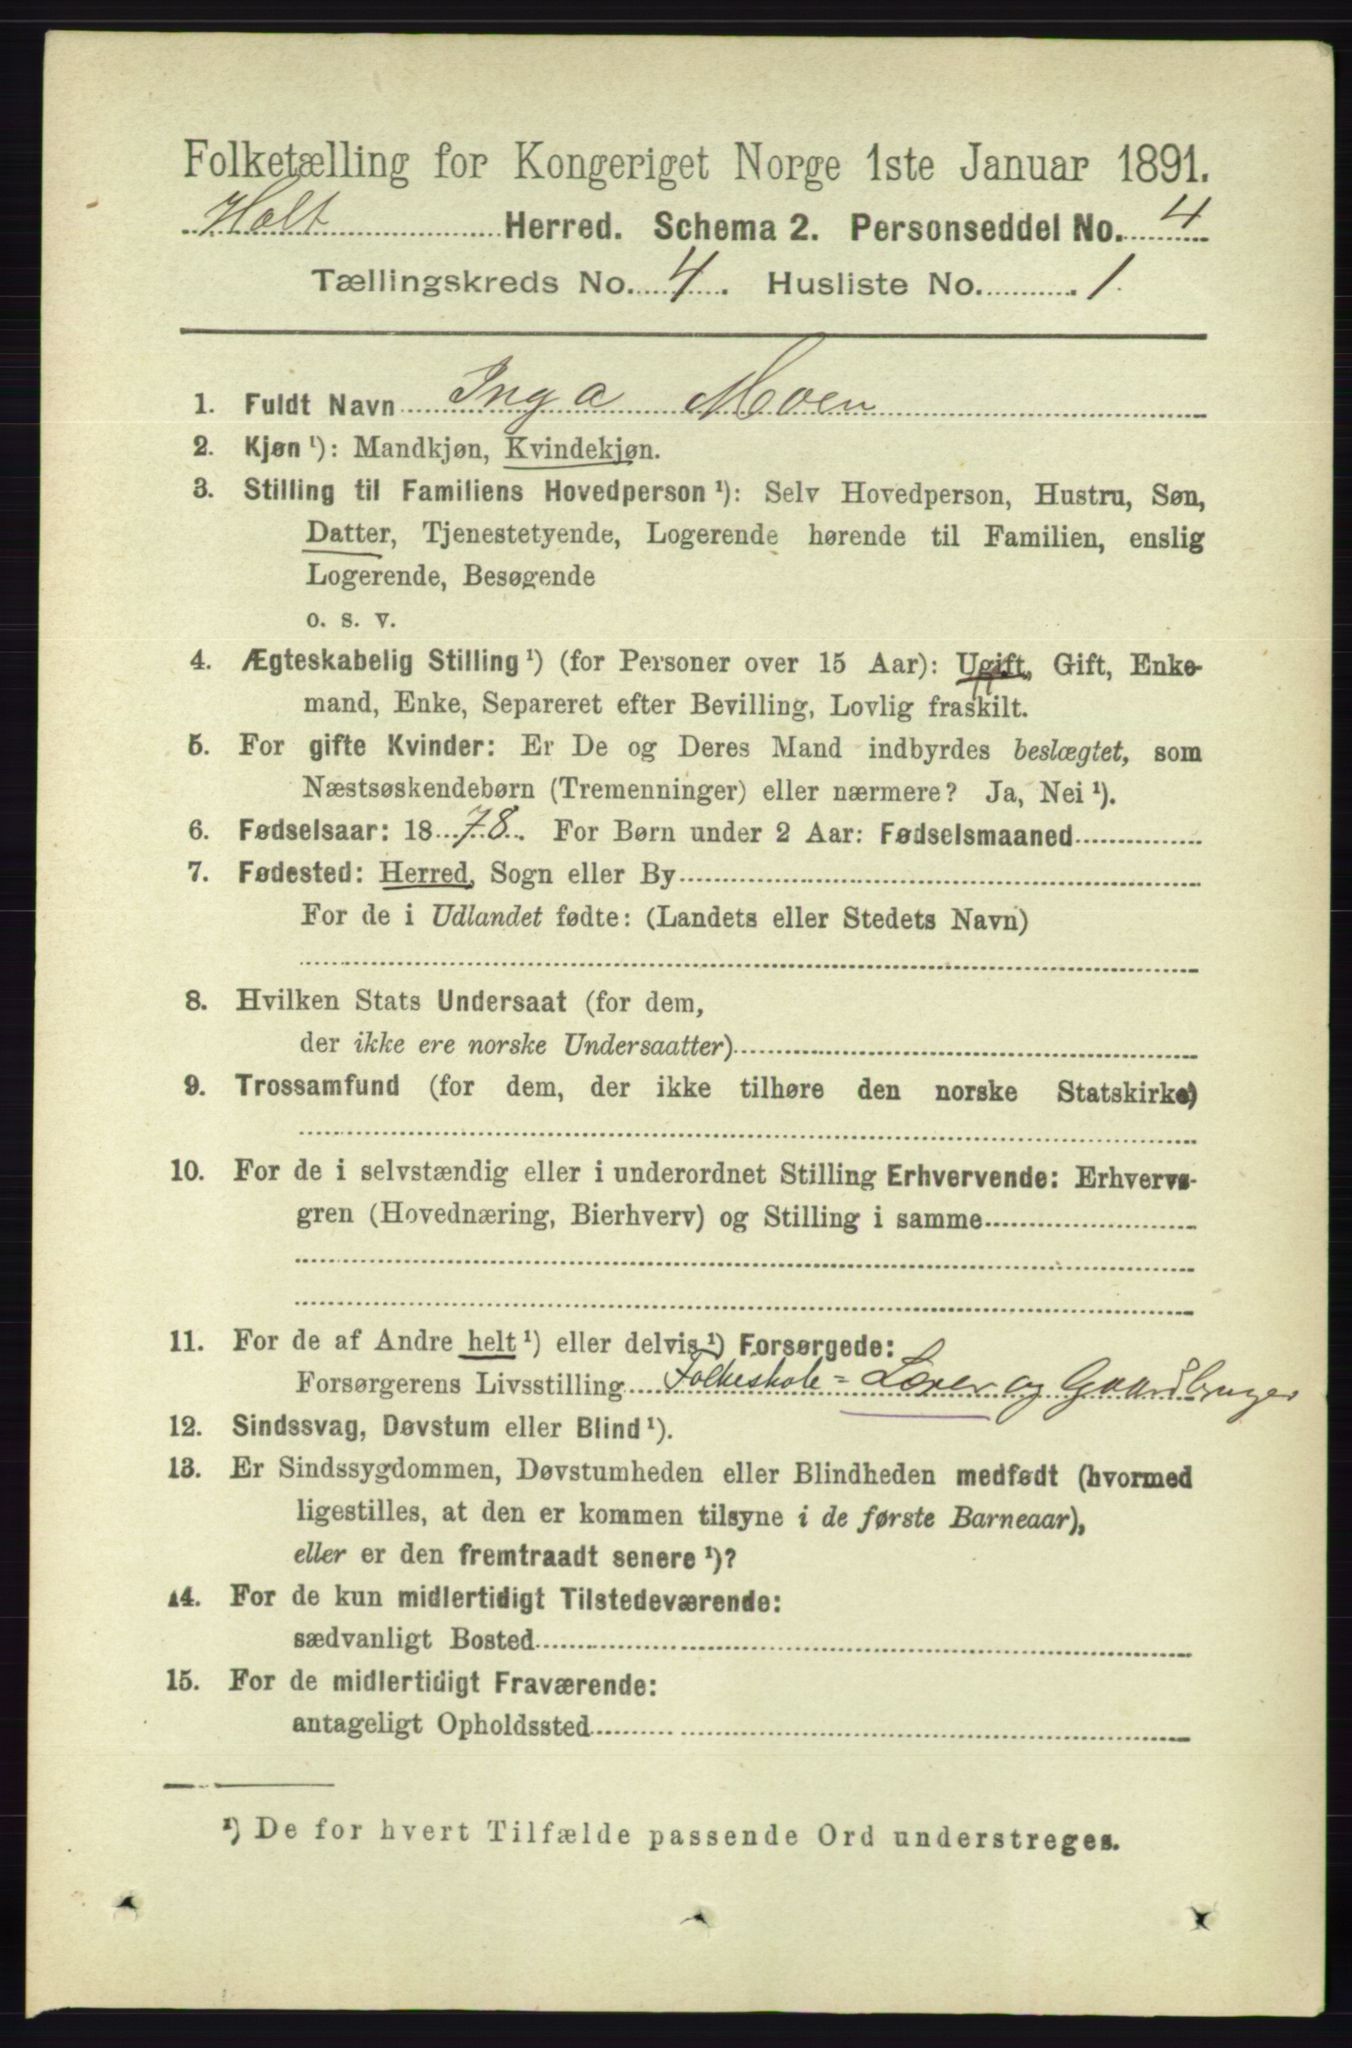 Folketælling for Kongeriget Norge 1ste Januar 1891.
Holt Herred. Schema 2. Personseddel No. 4
Tællingskreds No. 4. Husliste No. 1.
1. Fuldt Navn Inga Moen
2. Kjøn ¹): Mandkjøn, Kvindekjøn.
3. Stilling til Familiens Hovedperson ¹): Selv Hovedperson, Hustru, Søn,
Datter, Tjenestetyende, Logerende hørende til Familien, enslig
Logerende, Besøgende
o. s. v.
4. Ægteskabelig Stilling ¹) (for Personer over 15 Aar): Ugift, Gift, Enke-
mand, Enke, Separeret efter Bevilling, Lovlig fraskilt.
5. For gifte Kvinder: Er De og Deres Mand indbyrdes beslægtet, som
Næstsøskendebørn (Tremenninger) eller nærmere? Ja, Nei ¹).
6. Fødselsaar: 18 78. For Børn under 2 Aar: Fødselsmaaned
7. Fødested: Herred, Sogn eller By
For de i Udlandet fødte: (Landets eller Stedets Navn)
8. Hvilken Stats Undersaat (for dem,
der ikke ere norske Undersaatter)
9. Trossamfund (for dem, der ikke tilhøre den norske Statskirke)
10. For de i selvstændig eller i underordnet Stilling Erhvervende: Erhvervs-
gren (Hovednæring, Bierhverv) og Stilling i samme
11. For de af Andre helt ¹) eller delvis ¹) Forsørgede:
Forsørgerens Livsstilling Folkeskole=Lærer og Gaardbruger
12. Sindssvag, Døvstum eller Blind ¹).
13. Er Sindssygdommen, Døvstumheden eller Blindheden medfødt (hvormed
ligestilles, at den er kommen tilsyne i de første Barneaar),
eller er den fremtraadt senere ¹)?
14. For de kun midlertidigt Tilstedeværende:
sædvanligt Bosted
15. For de midlertidigt Fraværende:
antageligt Opholdssted
¹) De for hvert Tilfælde passende Ord understreges.